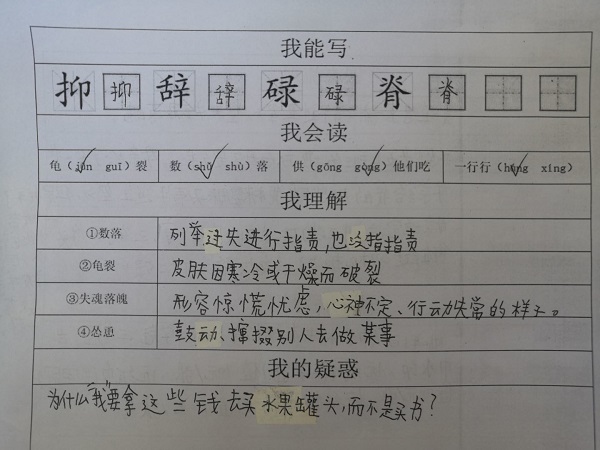 我能写
抑 抑 辞 辞 碌 碌 脊 脊
我会读
龟（jūn guī）裂 数（shǔ shù）落 供（gōng gòng）他们吃 一行行（háng xíng）
我理解
①数落 列举过失进行指责，也泛指指责
②龟裂 皮肤因寒冷或干燥而破裂
③失魂落魄 形容惊慌忧虑，心神不定、行动失常的样子。
④怂恿 鼓动、撺掇别人去做某事
我的疑惑
为什么“我”要拿这些钱去买水果罐头，而不是买书？